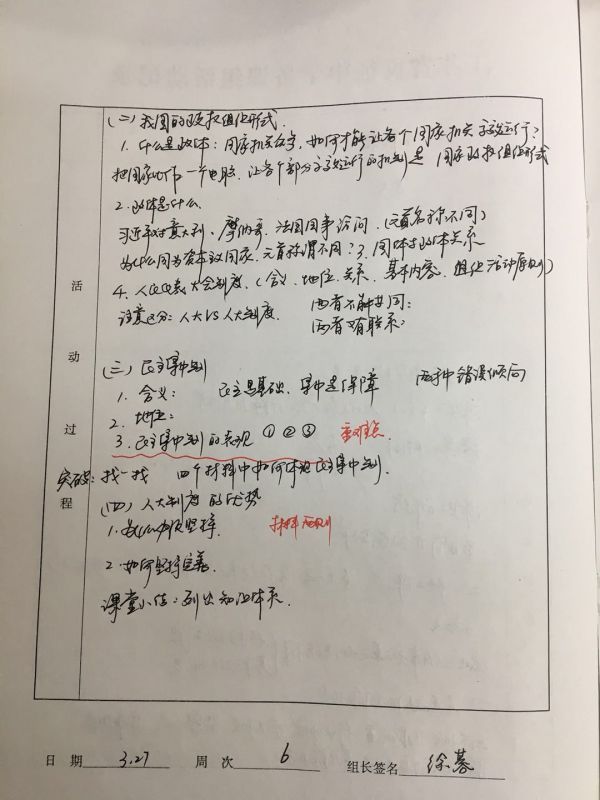 活动过程
(二)我国的政权组织形式.
1. 什么是政体:国家机关众多,如何才能让各个国家机关高效运行?
把国家比作一个电脑,让各个部分高效运行的机制是 国家政权组织形式
2. 政体是什么
习近平对意大利、摩纳哥、法国国事访问.(元首名称不同)
为什么同为资本主义国家.元首称谓不同?3. 国体与政体关系
4. 人民代表大会制度.(含义、地位、关系、基本内容、组织活动原则)
注意区分:人大VS人大制度. 两者不解共同:
两者又有联系:
(三)民主集中制
1. 含义: 民主是基础、集中是保障 两种错误倾向
2. 地位:
3. 民主集中制的表现 ① ② ③ 重难点.
突破:找一找 四个材料中如何体现民主集中制.
(四)人大制度的优势
1. 为什么必须坚持. 材料两则
2. 如何坚持完善.
课堂小结:列出知识体系.
日期 3.27 周次 6 组长签名 徐慕